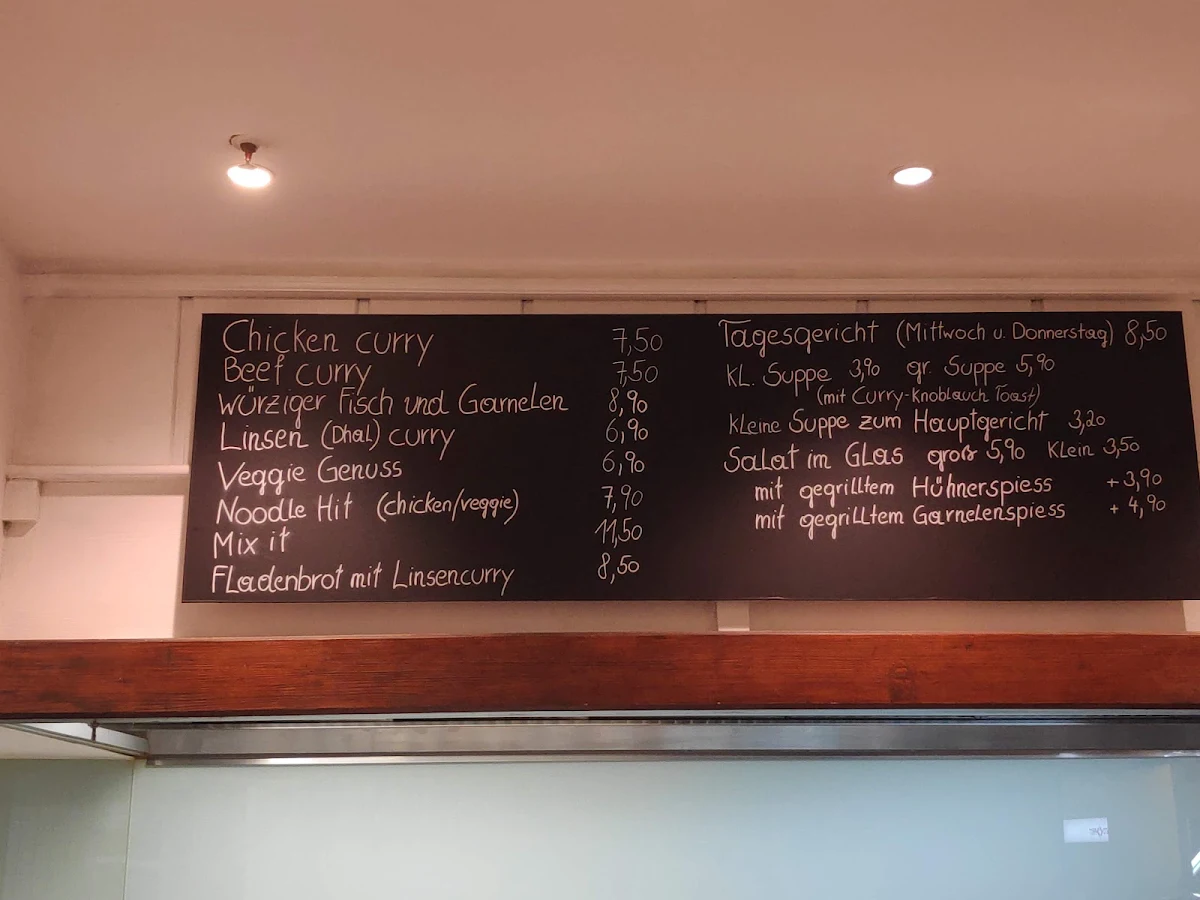 Chicken curry 7,50
Beef curry 7,50
Würziger Fisch und Garnelen 8,90
Linsen (Dhal) curry 6,90
Veggie Genuss 6,90
Noodle Hit (chicken/veggie) 7,90
Mix it 11,50
Fladenbrot mit Linsencurry 8,50
Tagesgericht (Mittwoch u. Donnerstag) 8,50
KL. Suppe 3,90 gr. Suppe 5,90
(mit Curry-Knoblauch Toast)
kleine Suppe zum Hauptgericht 3,20
Salat im Glas groß 5,90 Klein 3,50
mit gegrilltem Hühnerspiess +3,90
mit gegrilltem Garnelenspiess + 4,90